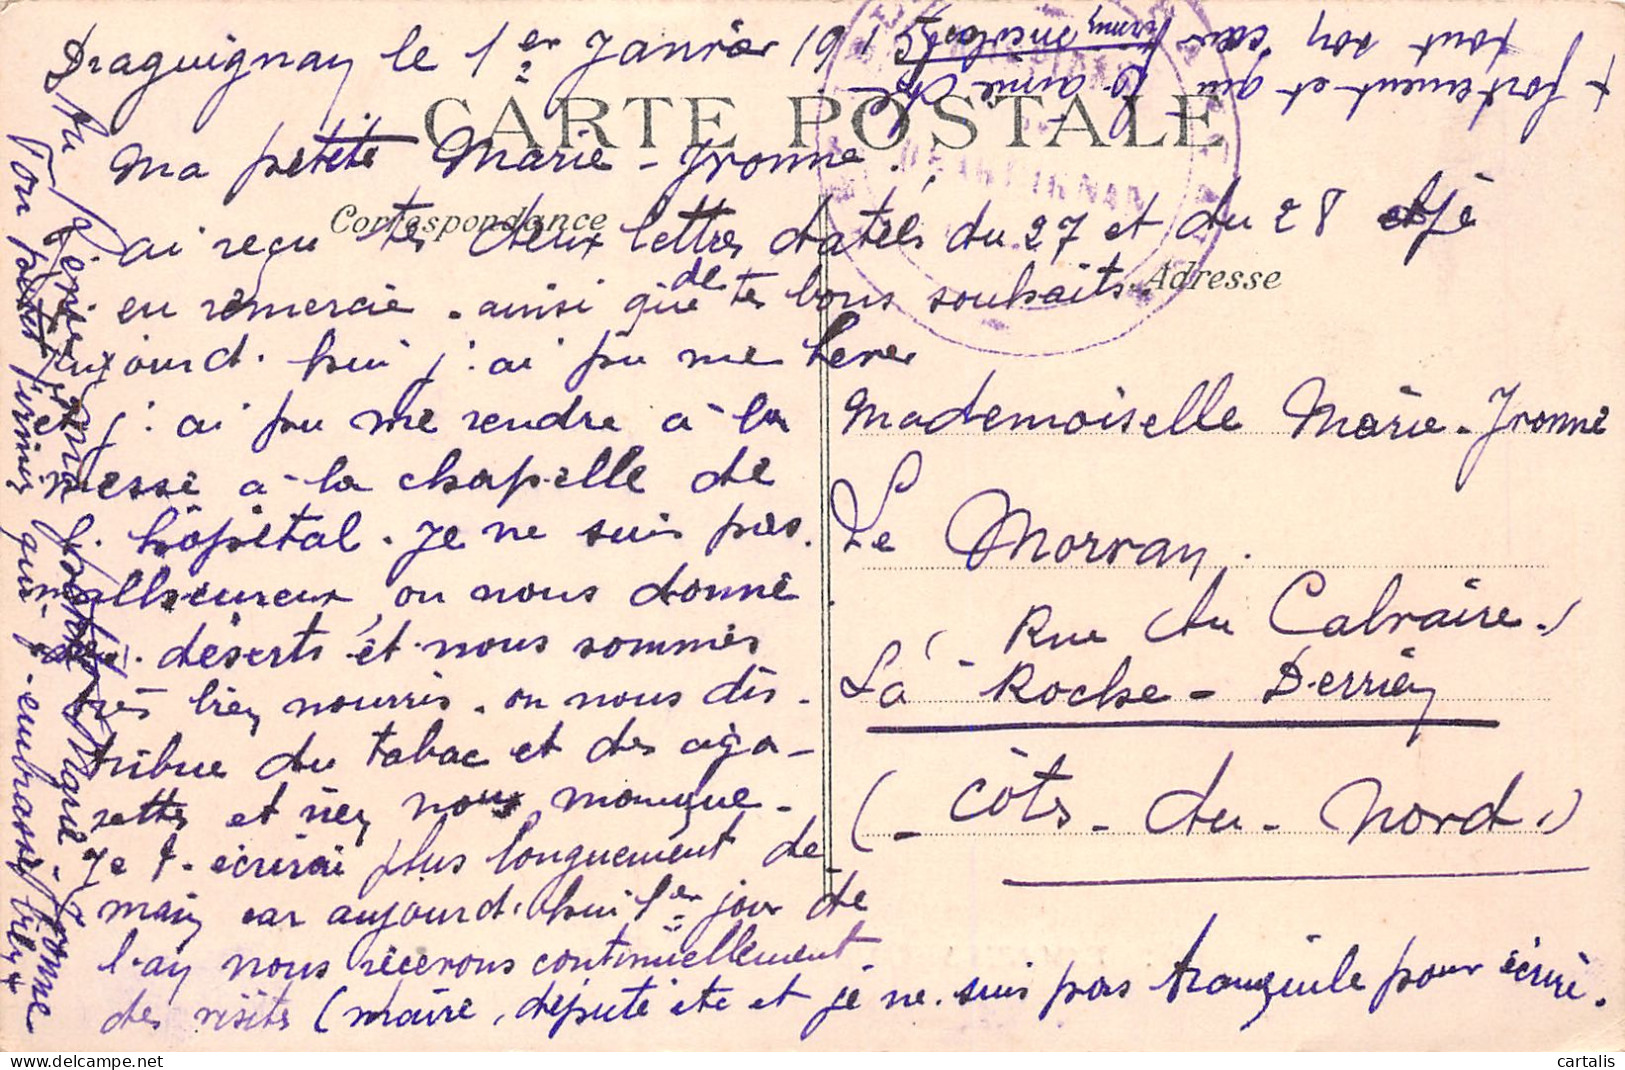 Draguignan le 1er Janvier 1915
CARTE POSTALE
Ma petite Marie-Yvonne.
Correspondance
j'ai reçu tes deux lettres datées du 27 et du 28 et je
t'en remercie. ainsi que de tes bons souhaits.
Adresse
aujourd'hui j'ai pu me lever
et j'ai pu me rendre à la
messe à la chapelle de
l'hôpital. Je ne suis pas
malheureux, on nous donne
des déserts et nous sommes
très bien nourris. on nous dis-
tribue du tabac et des ciga-
rettes et rien nous manque.
Je t'écrirai plus longuement de
main car aujourd'hui 1er jour de
l'an nous recevons continuellement
des visites (maire, député etc et je ne suis pas tranquile pour écrire.
Mademoiselle Marie-Yvonne
Le Morvan.
Rue du Calvaire.)
La Roche-Derrien
(Côtes-du-Nord.)
Ton petit firmin qui t'embrasse bien
+ fortement et qui t'aime de
tout son cœur
firmin
cartalis